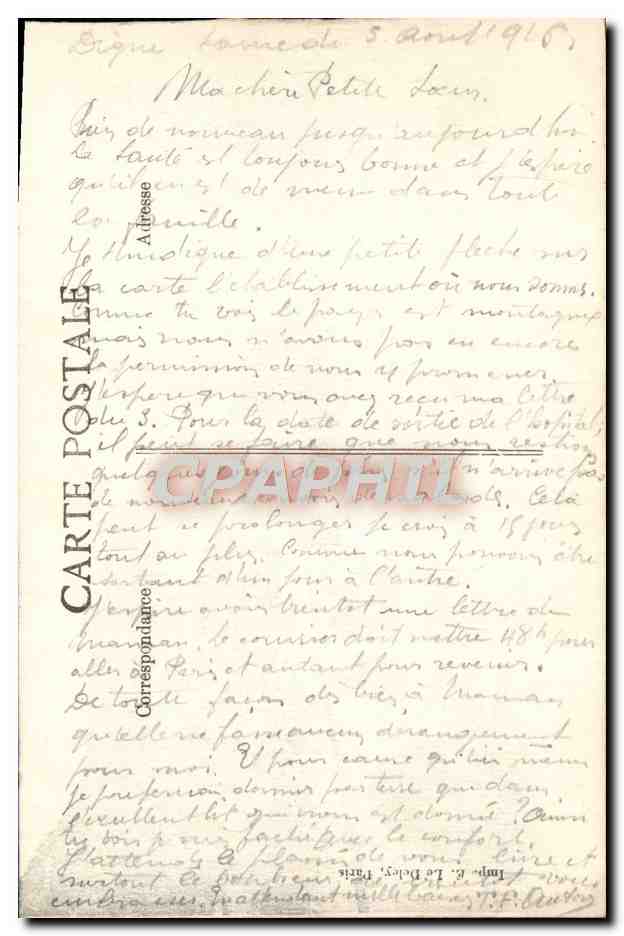 Digne Samedi 5 Aout 1916
Ma chère Petite Sœur.
Rien de nouveau jusqu'aujourd'hui
la santé est toujours bonne et j'espère
qu'il en est de meme dans tout
la famille.
Je t'indique d'une petite fleche sur
la carte l'etablissement où nous somms.
comme tu vois le pays est montagneux
mais nous n'avons pas eu encore
la permission de nous y promener
J'espere que vous avez recu ma lettre
du 3. Pour la date de sortie de l'hopital,
il peut se faire que nous restions
quelques jours de plus s'il n'arrive pas
de nouveau convois de malades. Cela
peut se prolonger je crois à 15 jours
tout au plus. Comme nous pouvons être
sortant d'un jour à l'autre.
J'espère avoir bientot une lettre de
maman, le courrier doit mettre 48h pour
aller à Paris et autant pour revenir.
De toute façon dis bien à Maman
qu'elle ne fasse aucun derangement
pour moi. Et pour cause qu'ici meme
je prefererai dormir par terre que dans
l'excellent lit qui nous est donné? Ainsi
tu vois je suis faché avec le confort.
J'attends le plaisir de vous lire et
surtout le bonheur de bientot vous
embrasser. En attendant mille baisers
CARTE POSTALE
Correspondance
Adresse
Imp. E. Le Deley, Paris
CPAPHIL